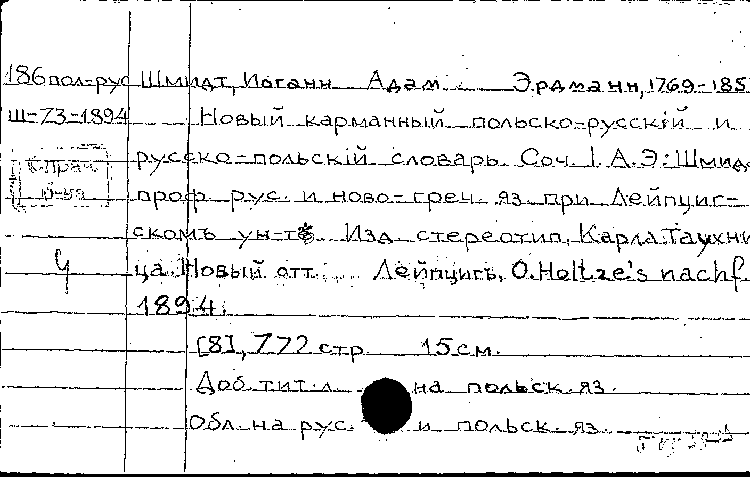 186 пол=рус Шмидт, Иоганн Адам Эрдманн, 1769-185
Ш-73-1894 Новый карманный польско-русскій и
русско-польскій словарь. Соч. І.А.Э. Шмид
проф. рус. и ново-греч. яз. при Лейпциг-
скомъ ун-тѣ. Изд. стереотип. Карла Таухни
ца. Новый отт. Лейпцигъ, O. Holtze's nachf.
1894.
[8], 772 стр. 15 см.
Доб. тит. л. на польск. яз.
Обл. на рус. и польск. яз.